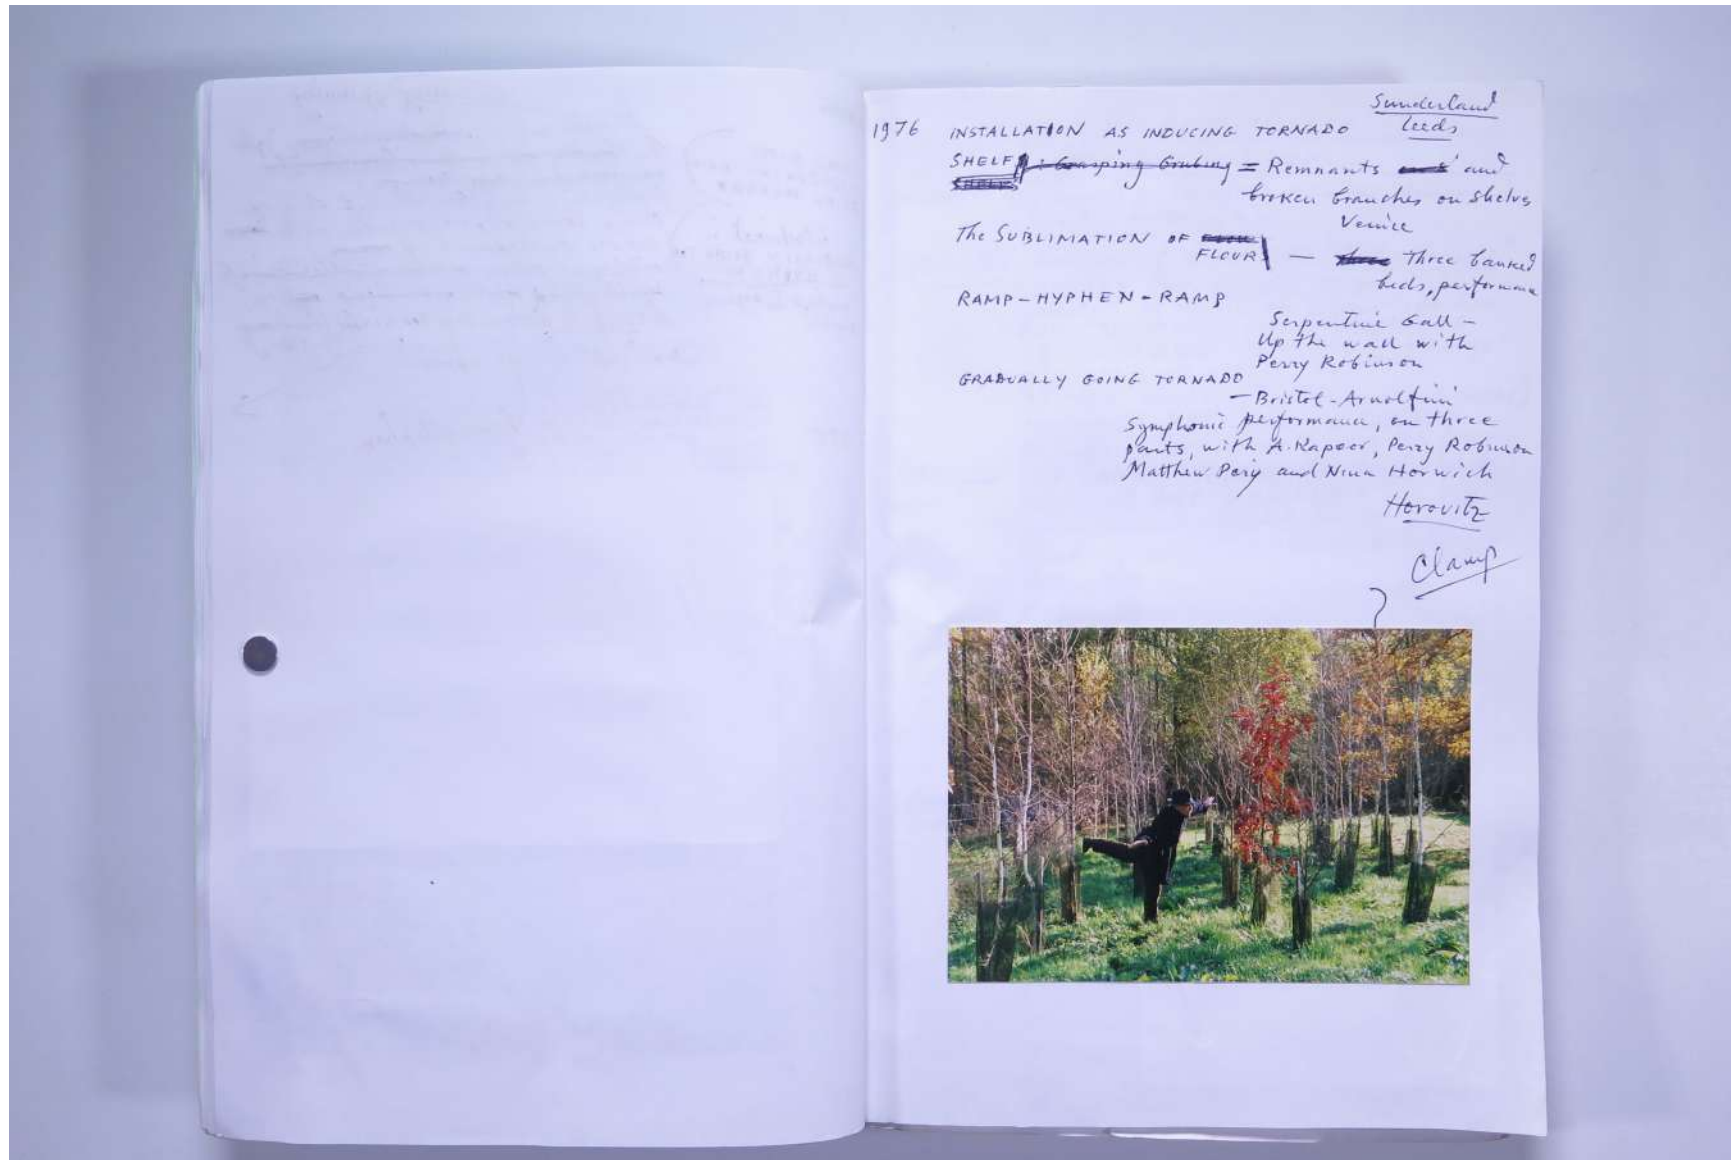 Sunderland
Leeds
1976 INSTALLATION AS INDUCING TORNADO
SHELF : Grasping Grubing = Remnants and
broken branches on shelves
Venice
The SUBLIMATION OF
FLOUR — Three banked
beds, performance
RAMP-HYPHEN-RAMP
Serpentine Gall -
Up the wall with
Perry Robinson
GRADUALLY GOING TORNADO
- Bristol - Arnolfini
Symphonic performance, on three
parts, with A. Kapoor, Perry Robinson
Matthew and Nina Horwich
Horovitz
Clamp
?